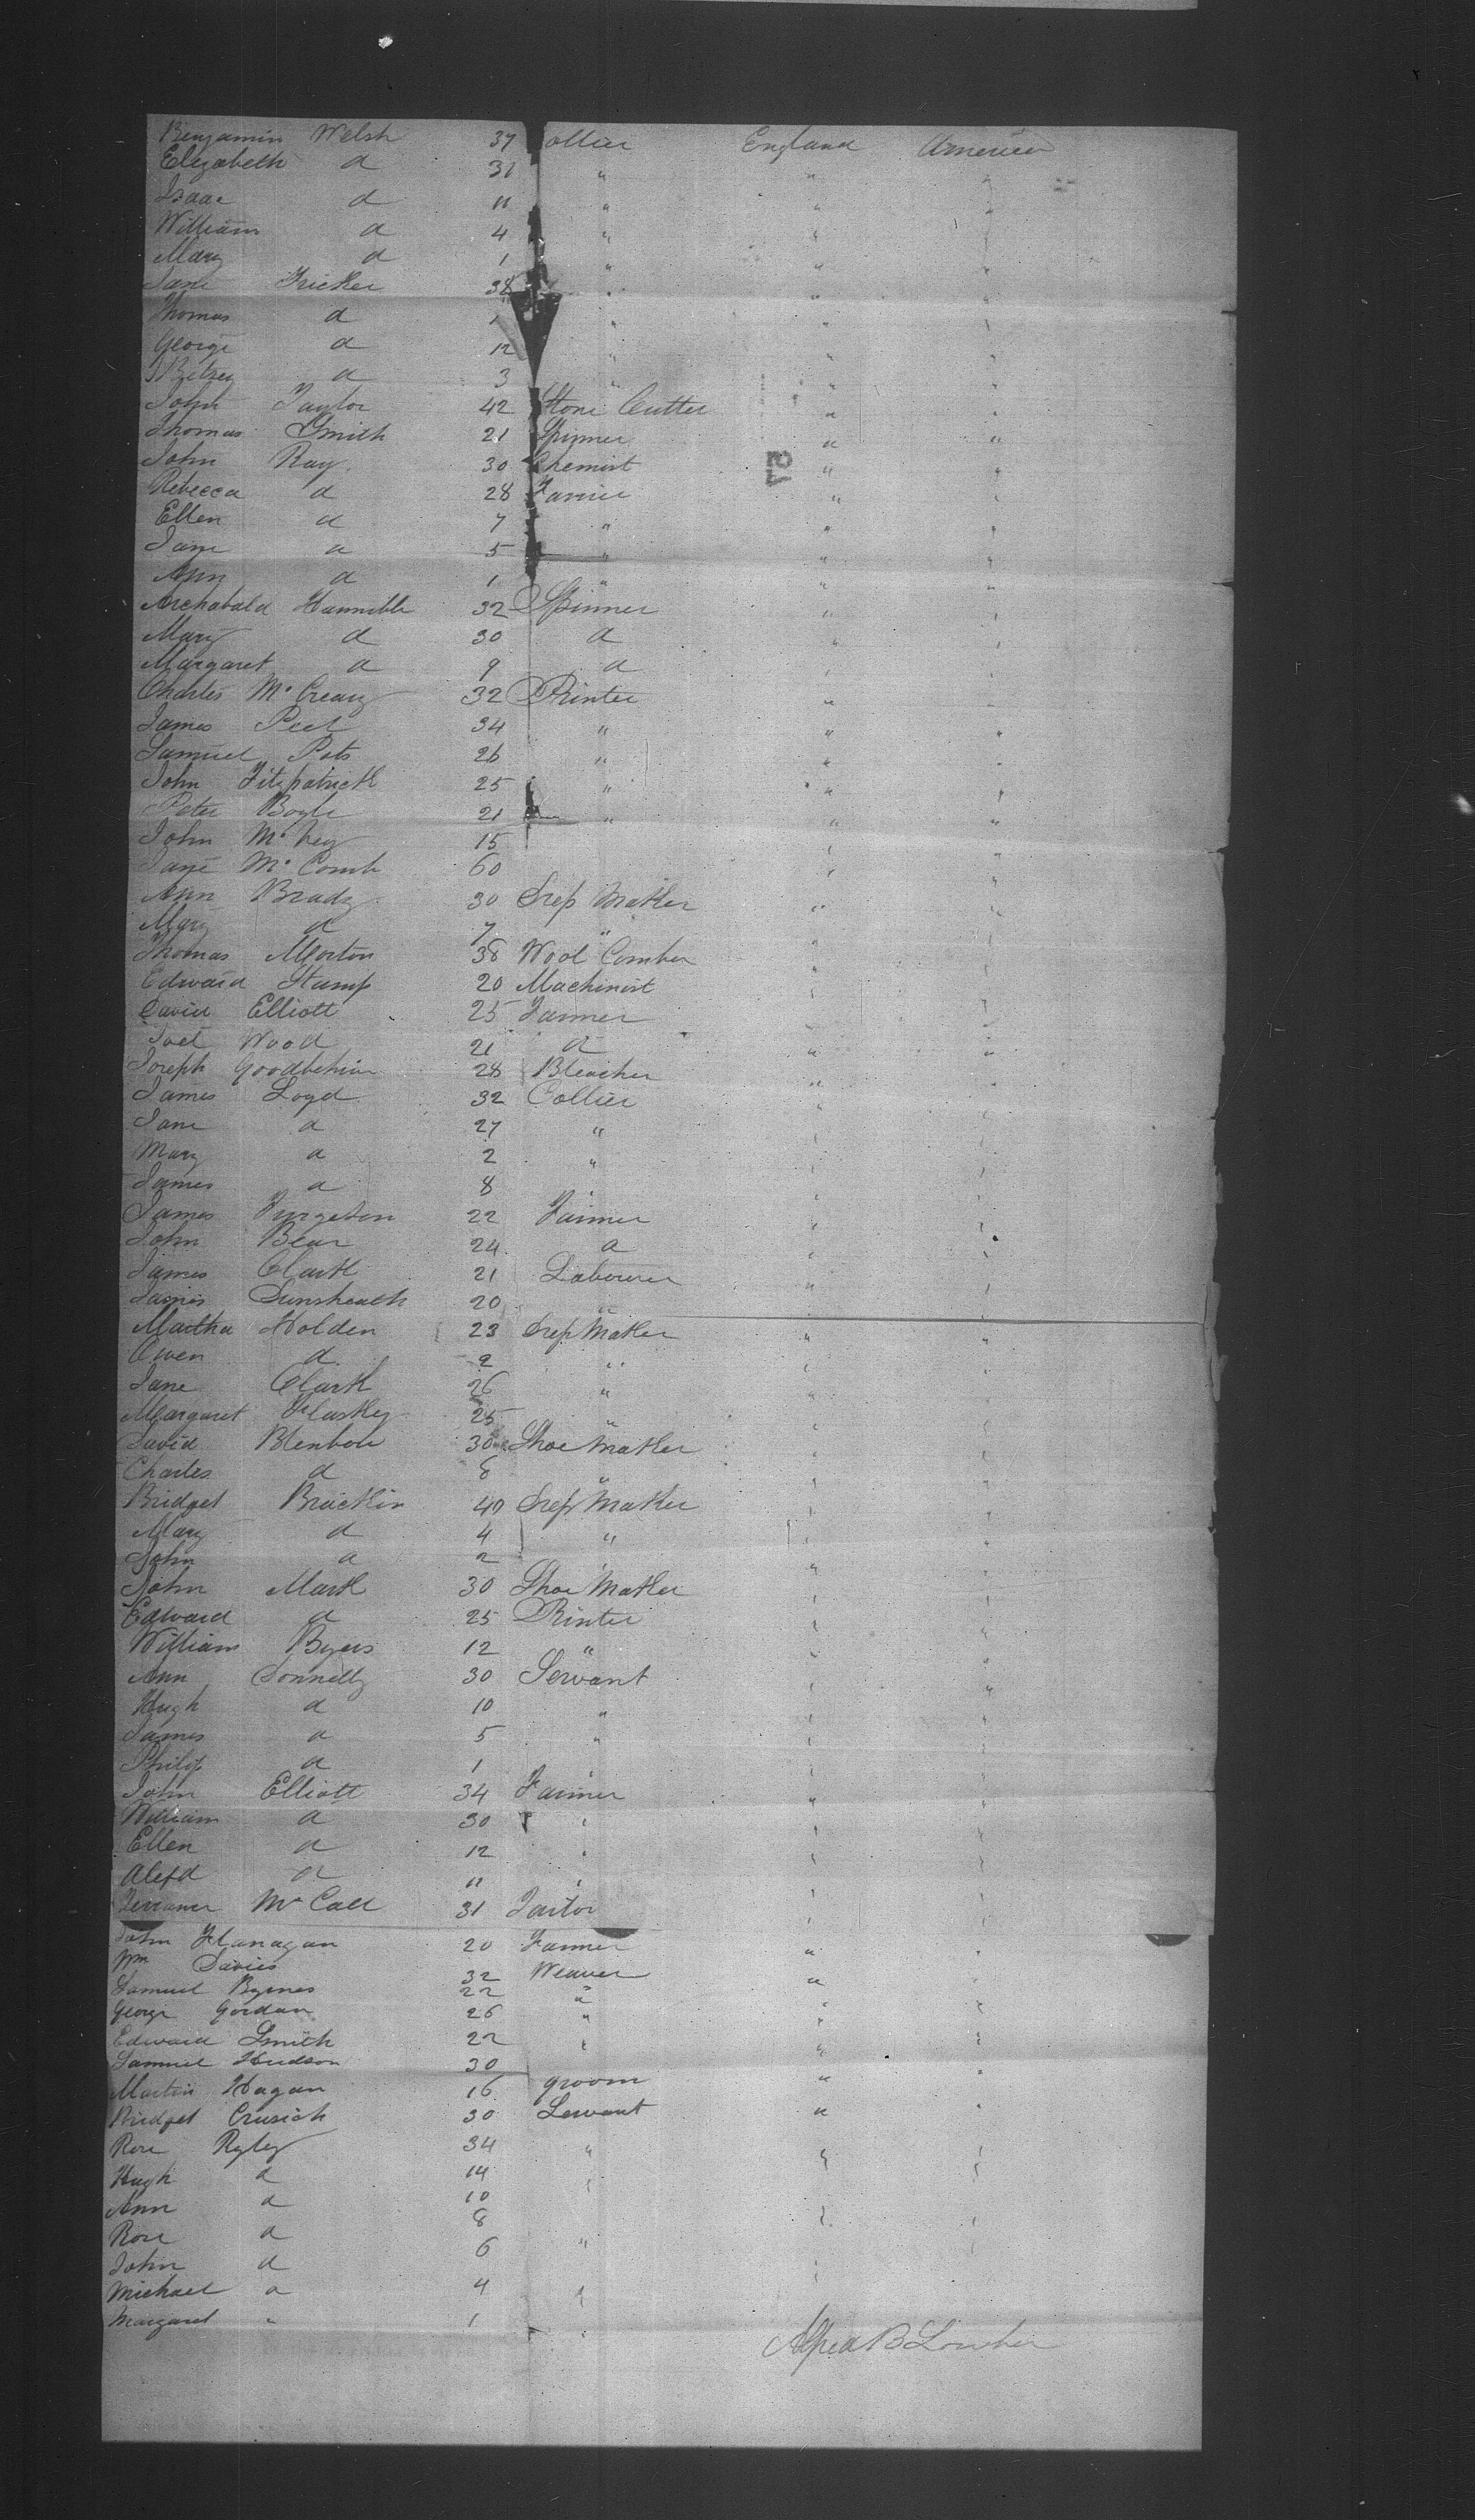 Benjamin Welsh 37 Collier England America
Elizabeth d 31 " " "
Isaac d 11 " " "
William d 4 " " "
Mary d 1 " " "
Jane Fricker 38 " " "
Thomas d 1 " " "
George d 12 " " "
Betsey d 3 " " "
John Taylor 42 Stone Cutter " "
Thomas Smith 21 Spinner " "
John Ray 30 Chemist " "
Rebecca d 28 Farmer " "
Ellen d 7 " " "
Jane d 5 " " "
Ann d 1 " " "
Archabald Hannible 32 Spinner " "
Mary d 30 d " "
Margaret d 9 d " "
Charles Mc Creary 32 Printer " "
James Peel 34 " " "
Samuel Pots 26 " " "
John Fitzpatrick 25 " " "
Peter Boyle 21 " " "
John Mc 15 " "
Jane Mc Comb 60 " "
Ann Brady 30 Drep Maker " "
Mary d 7 " " "
Thomas Morton 38 Wool Comber " "
Edward Stump 20 Machinist " "
David Elliott 25 Farmer " "
Joel Wood 21 d " "
Joseph Goodbehim 28 Bleacher " "
James Loyd 32 Collier " "
Jane d 27 " " "
Mary d 2 " " "
James d 8 " " "
James Furgeson 22 Farmer " "
John Bear 24 d " "
James Clark 21 Labourer " "
James 20 " " "
Martha Holden 23 Drep Maker " "
Owen d 2 " " "
Jane Clark 26 " " "
Margaret Fluskey 25 " " "
David Blenbow 30 Shoe Maker " "
Charles d 8 " " "
Bridget Bracklin 40 Drep Maker " "
Mary d 4 " " "
John d 2 " " "
John Mark 30 Shoe Maker " "
Edward d 25 Printer " "
William Byers 12 " " "
Ann Donnelly 30 Servant " "
Hugh d 10 " " "
James d 5 " " "
Philip d 1 " " "
John Elliott 34 Farmer " "
William d 30 " " "
Ellen d 12 " " "
Alexd d 11 " " "
Mc Call 31 Tailor " "
John Flanagan 20 Farmer " "
Wm Davies 32 Weaver " "
Samuel Byrnes 22 " " "
George Gordan 26 " " "
Edward Smith 22 " " "
Samuel Hudson 30
Martin Hagan 16 groom " "
Bridget Crusich 30 Servant " "
Rose Ryley 34 " " "
Hugh d 14 "
Ann d 10
Rose d 8
John d 6 "
Michael d 4 "
Margaret " 1 "
Alfred B Lowber